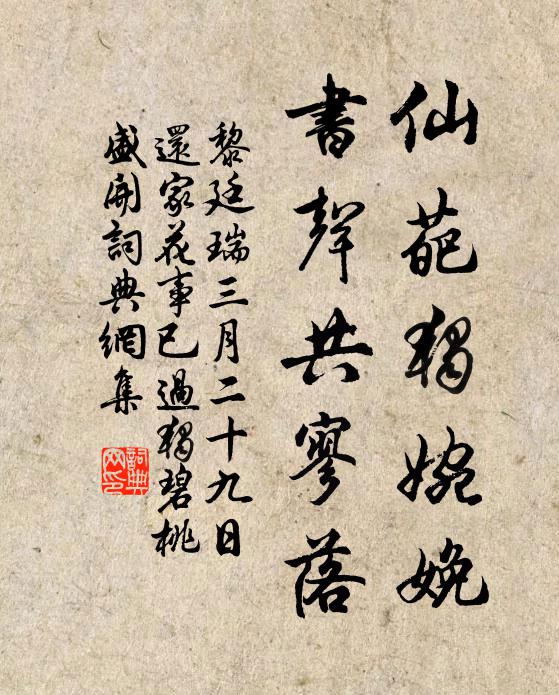 仙葩獨婉娩
書聲共寥落
黎廷瑞三月二十九日
還家花事已過獨碧桃
盛開詞典網集
詞典網印